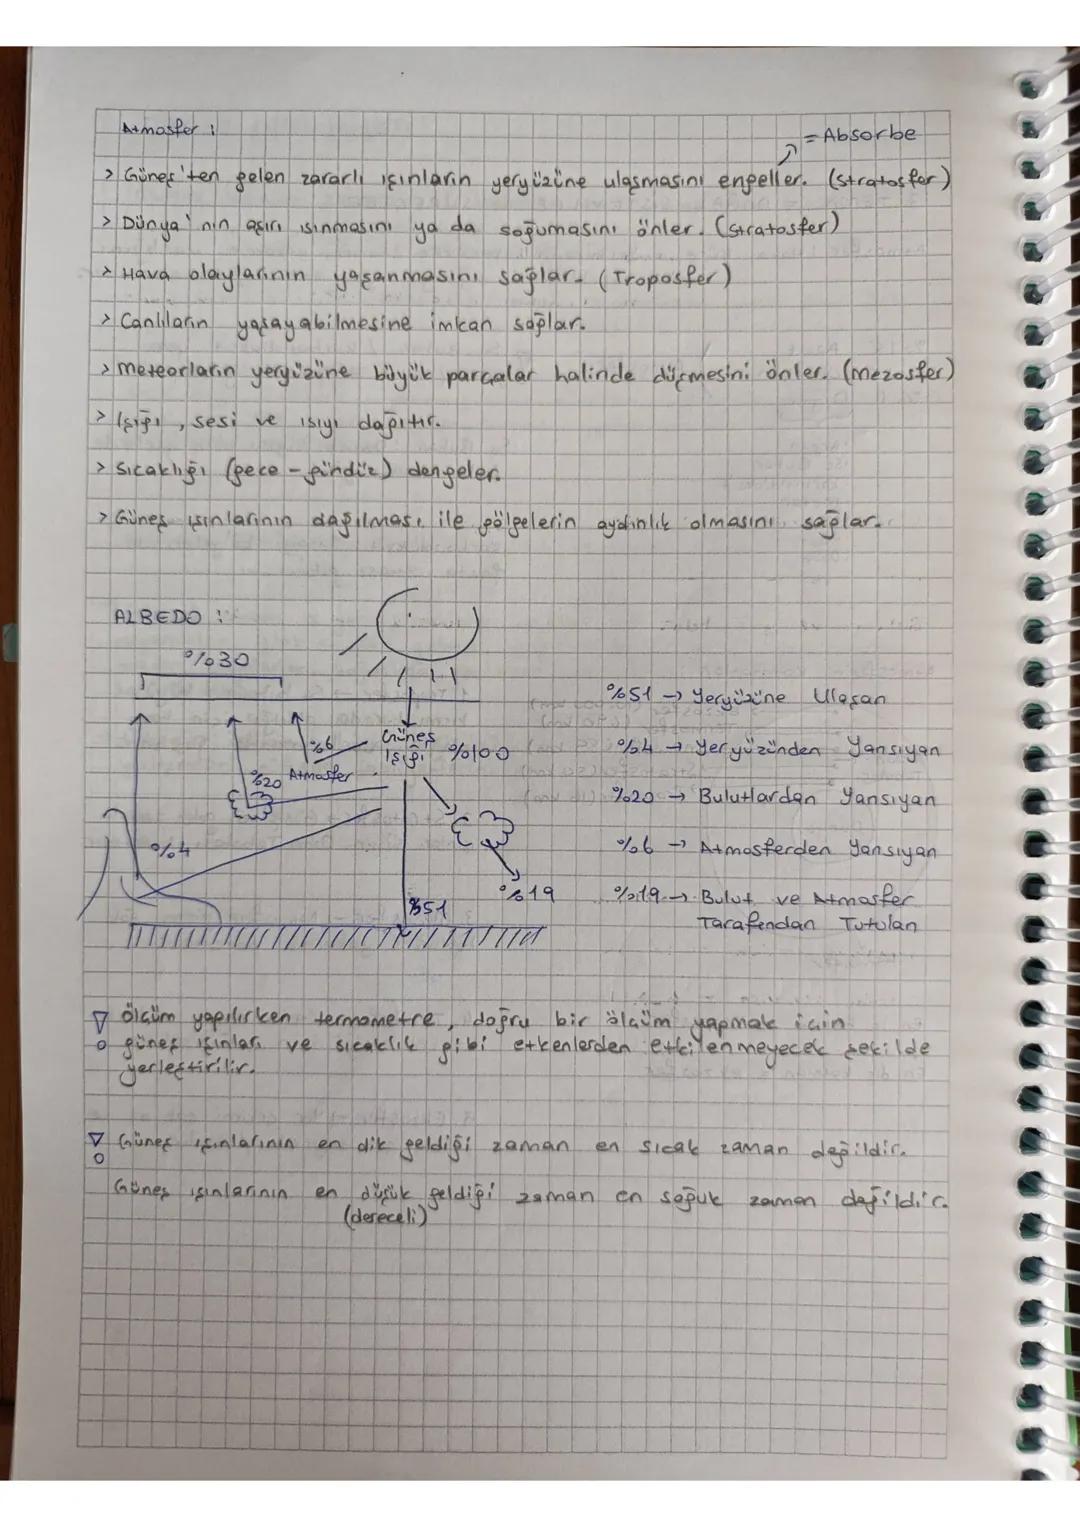 Atmosfer :
= Absorbe
> Güneş'ten gelen zararlı ışınların yeryüzüne ulaşmasını engeller. (Stratosfer)
> Dünya'nın aşırı ısınmasını ya da soğumasını önler. (Stratosfer)
> Hava olaylarının yaşanmasını sağlar. (Troposfer)
> Canlıların yaşayabilmesine imkan sağlar.
> Meteorların yeryüzüne büyük parçalar halinde düşmesini önler. (Mezosfer)
> Işığı, sesi ve ısıyı dağıtır.
> Sıcaklığı (gece - gündüz) dengeler.
> Güneş ışınlarının dağılması ile gölgelerin aydınlık olmasını sağlar.
ALBEDO :
%30
Güneş
Işığı %100
%6
Atmosfer
%20
%4
%19
%51
%51 → Yeryüzüne Ulaşan
%4 → Yeryüzünden Yansıyan
%20 → Bulutlardan Yansıyan
%6 → Atmosferden Yansıyan
%19 → Bulut ve Atmosfer
Tarafından Tutulan
Ölçüm yapılırken termometre, doğru bir ölçüm yapmak için
güneş ışınları ve sıcaklık gibi etkenlerden etkilenmeyecek şekilde
yerleştirilir.
Güneş ışınlarının en dik geldiği zaman en sıcak zaman değildir.
Güneş ışınlarının en düşük geldiği zaman en soğuk zaman değildir.
(dereceli)